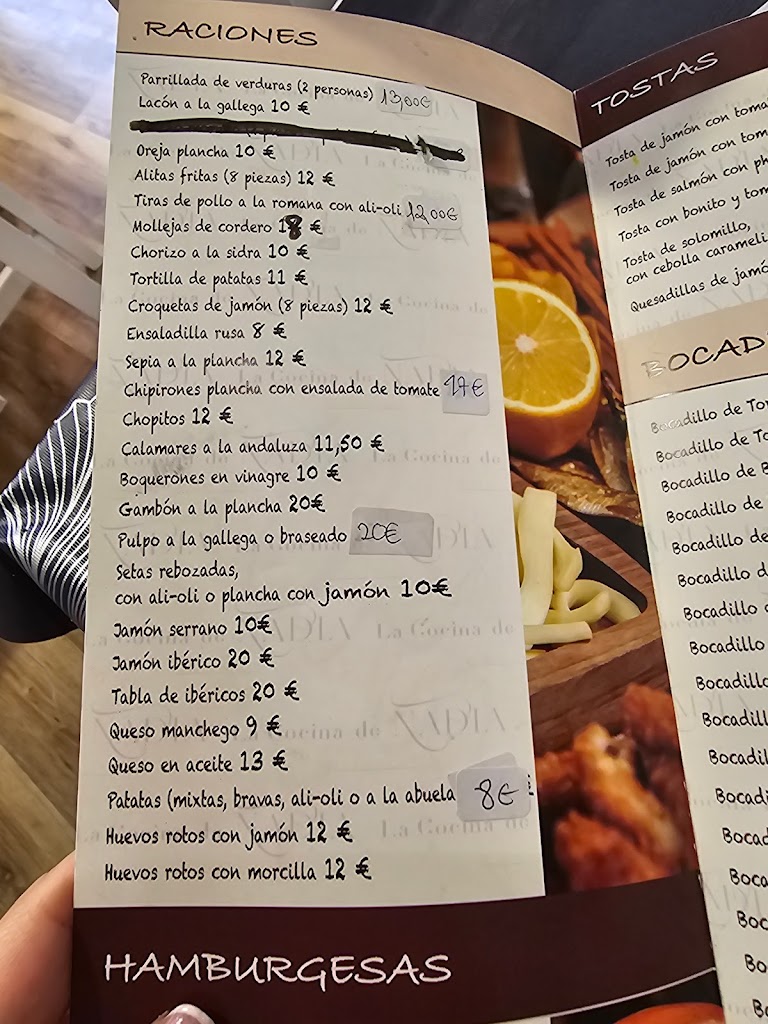 RACIONES
Parrillada de verduras (2 personas) 13,00€
Lacón a la gallega 10 €
Oreja plancha 10 €
Alitas fritas (8 piezas) 12 €
Tiras de pollo a la romana con ali-oli 12,00€
Mollejas de cordero 18 €
Chorizo a la sidra 10 €
Tortilla de patatas 11 €
Croquetas de jamón (8 piezas) 12 €
Ensaladilla rusa 8 €
Sepia a la plancha 12 €
Chipirones plancha con ensalada de tomate 17€
Chopitos 12 €
Calamares a la andaluza 11,50 €
Boquerones en vinagre 10 €
Gambón a la plancha 20€
Pulpo a la gallega o braseado 20€
Setas rebozadas,
con ali-oli o plancha con jamón 10€
Jamón serrano 10€
Jamón ibérico 20 €
Tabla de ibéricos 20 €
Queso manchego 9 €
Queso en aceite 13 €
Patatas (mixtas, bravas, ali-oli o a la abuela 8€
Huevos rotos con jamón 12 €
Huevos rotos con morcilla 12 €
HAMBURGESAS
TOSTAS
Tosta de jamón con toma
Tosta de jamón con tom
Tosta de salmón con ph
Tosta con bonito y tom
Tosta de solomillo,
con cebolla carameli
Quesadillas de jamó
BOCAD
Bocadillo de Tor
Bocadillo de To
Bocadillo de B
Bocadillo de
Bocadillo de
Bocadillo d
Bocadillo
Bocadillo
Bocadillo
Bocadillo
Bocadil
Bocadi
Bocad
Boca
Boc
Bo
Bo